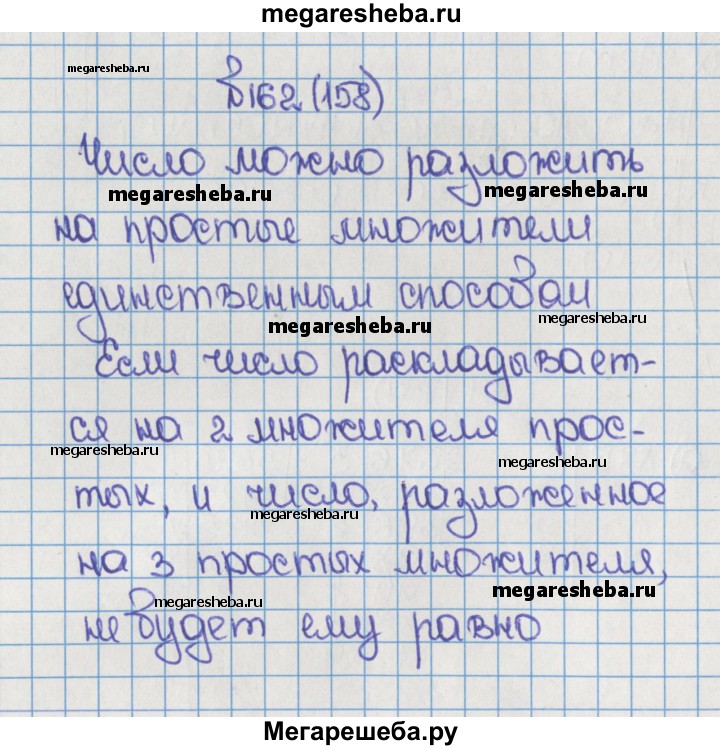 megaresheba.ru
megaresheba.ru
№162 (158)
Число можно разложить
megaresheba.ru megaresheba.ru
на простые множители
единственным способом
megaresheba.ru megaresheba.ru
Если число раскладывает-
ся на 2 множителя прос-
megaresheba.ru megaresheba.ru
тых, и число, разложенное
megaresheba.ru
на 3 простых множителя,
megaresheba.ru megaresheba.ru
не будет ему равно
Мегарешеба.ру